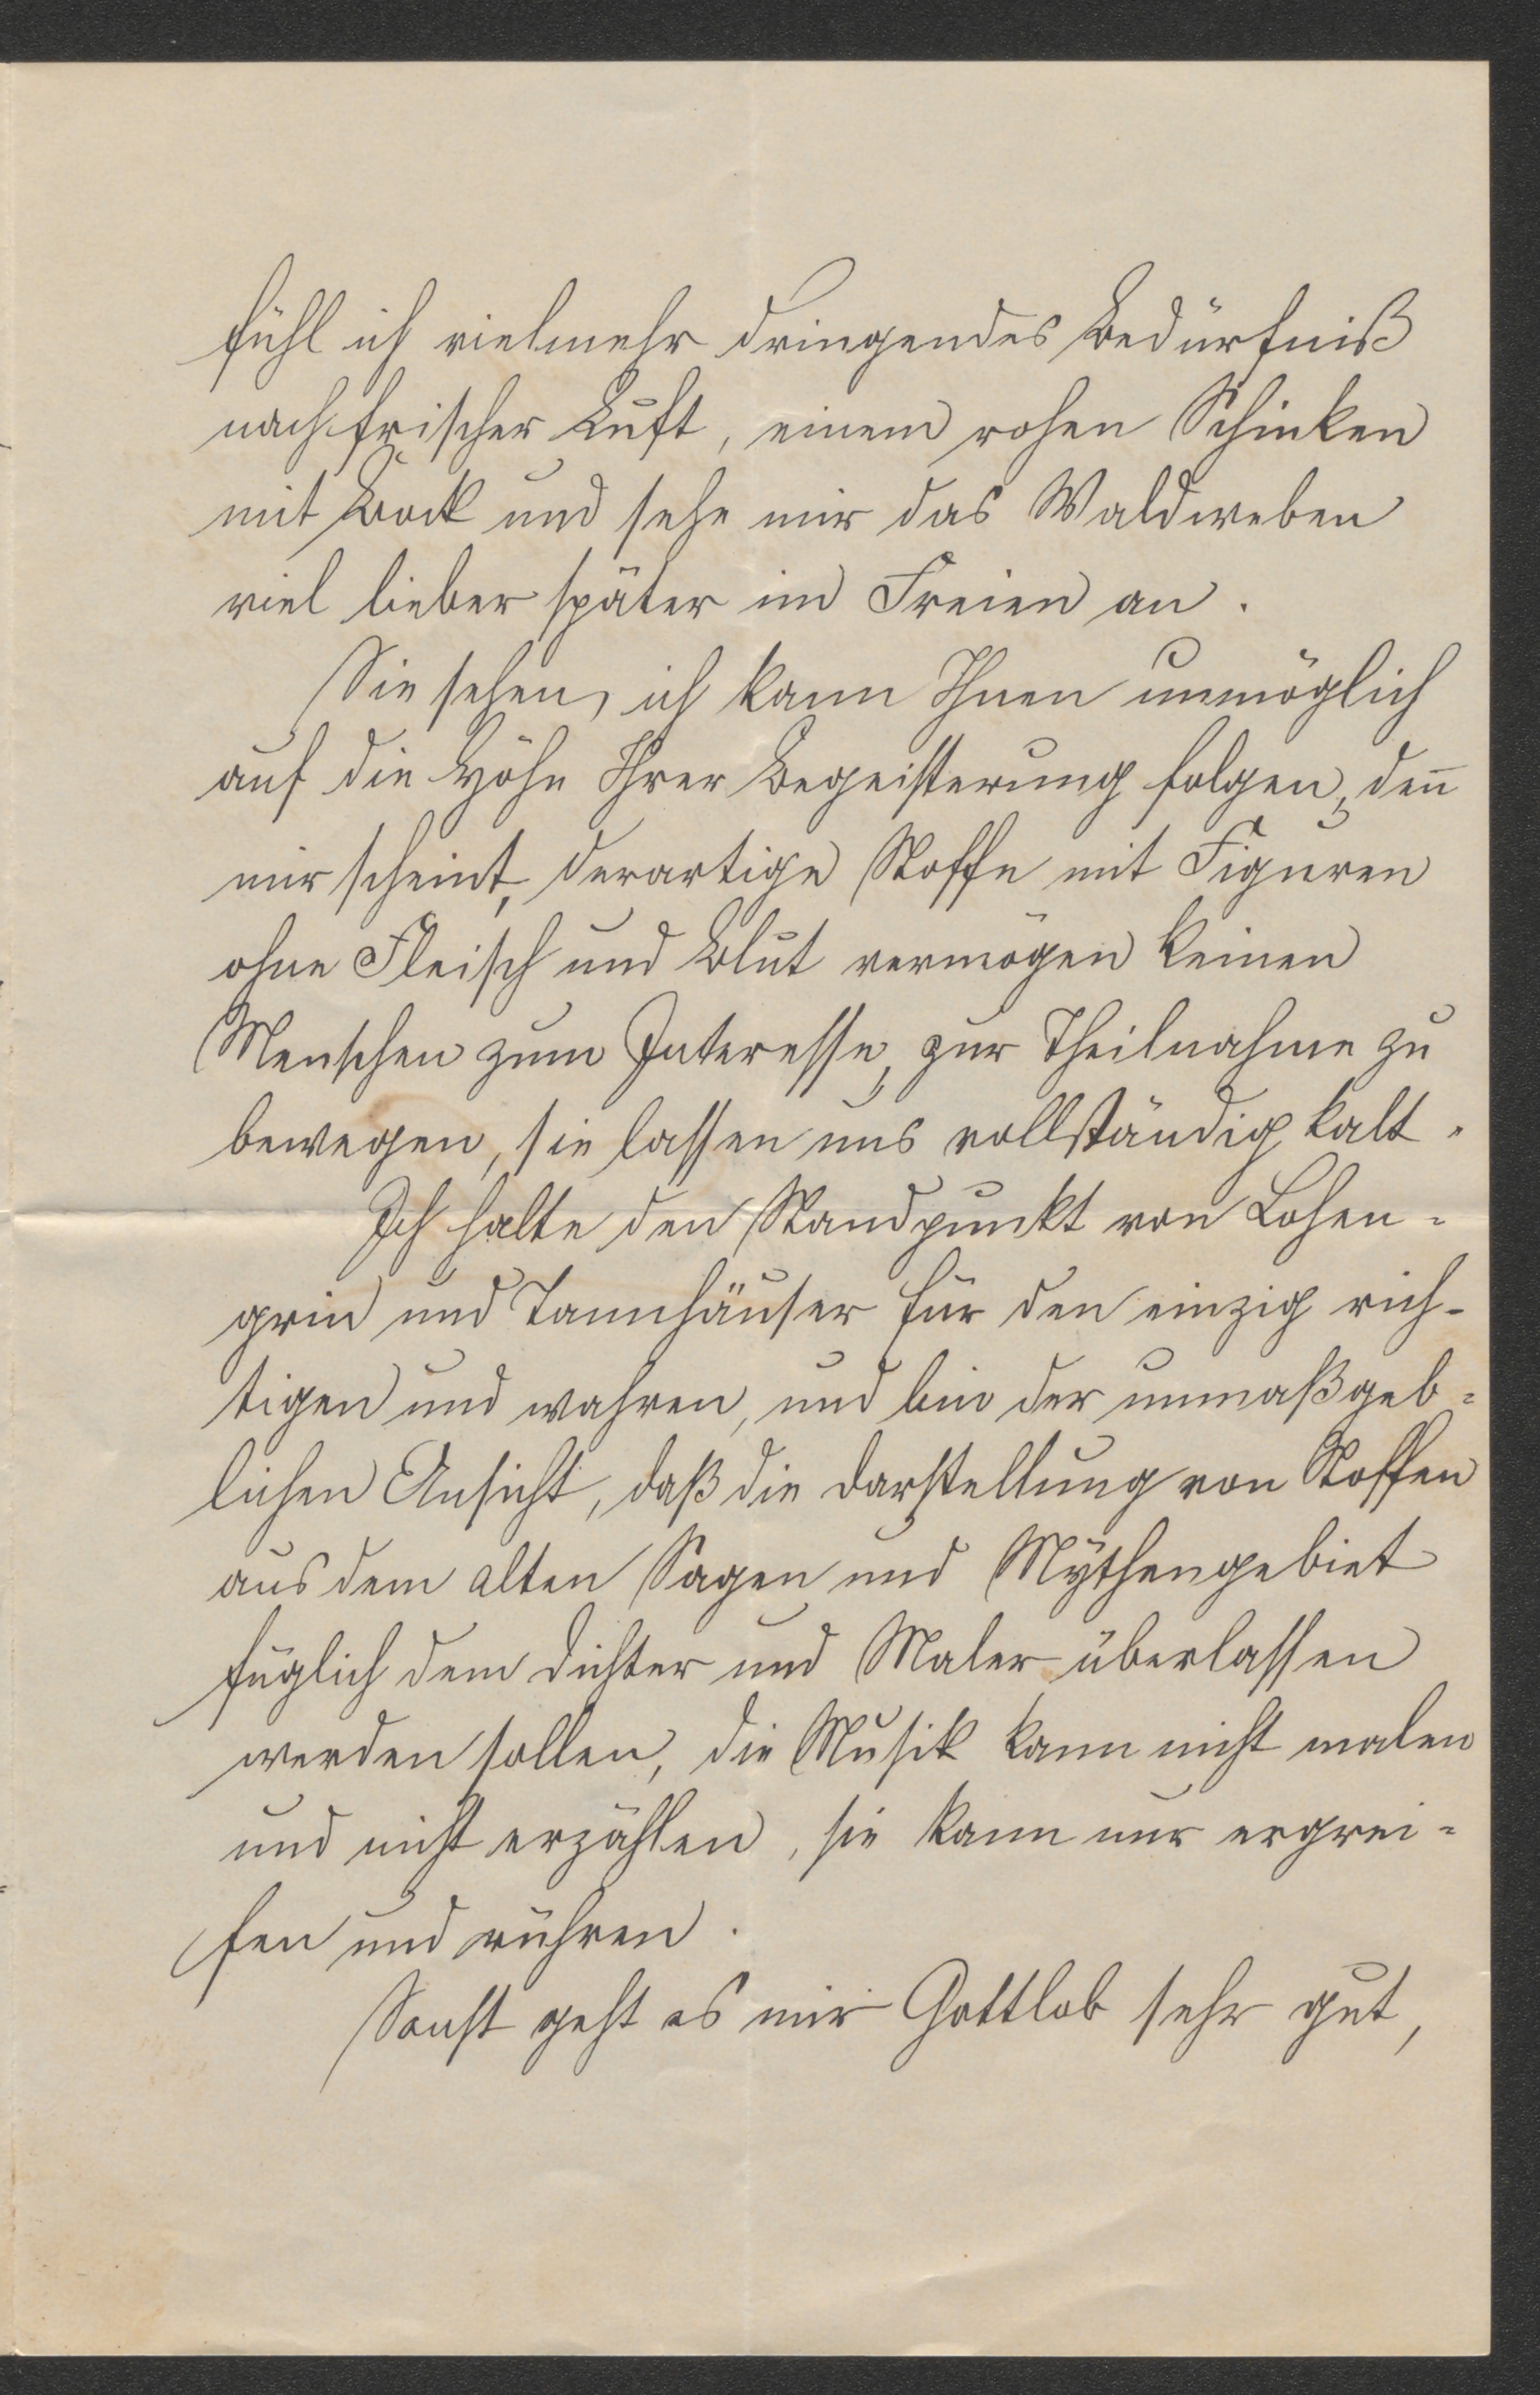 fühl ich vielmehr dringendes Bedürfniß
nach frischer Luft, einem rohen Schinken
mit Bock und sehe mir das Waldweben
viel lieber später im Freien an.
Sie sehen, ich kann Ihnen unmöglich
auf die Höhe Ihrer Begeisterung folgen, den̅
mir scheint, derartige Stoffe mit Figuren
ohne Fleisch und Blut vermögen keinen
Menschen zum Interesse, zur Theilnahme zu
bewegen, sie lassen uns vollständig kalt.
Ich halte den Standpunkt von Lohen-
grin und Tannhäuser für den einzig rich-
tigen und wahren, und bin der unmaßgeb-
lichen Ansicht, daß die Darstellung von Stoffen
aus dem alten Sagen und Mythengebiet
füglich dem Dichter und Maler überlassen
werden sollen, die Musik kann nicht malen
und nicht erzählen, sie kann nur ergrei-
fen und rühren.
Sonst geht es mir Gottlob sehr gut,